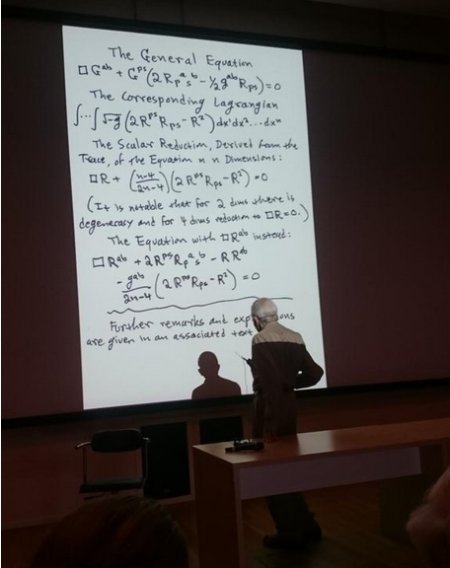 The General Equation
□G^ab + G^ps (2R_p^a_s^b - ½g^ab R_ps) = 0
The Corresponding Lagrangian
∫...∫√-g (2R^ps R_ps - R²) dx¹dx²...dxⁿ
The Scalar Reduction, Derived from the
Trace, of the Equation in n Dimensions:
□R + ((n-4)/(2n-4)) (2R^ps R_ps - R²) = 0
(It is notable that for 2 dims there is
degeneracy and for 4 dims reduction to □R=0.)
The Equation with □R^ab instead:
□R^ab + 2R^ps R_p^a_s^b - R R^ab
- (g^ab/(2n-4)) (2R^ps R_ps - R²) = 0
Further remarks and
are given in an associated text